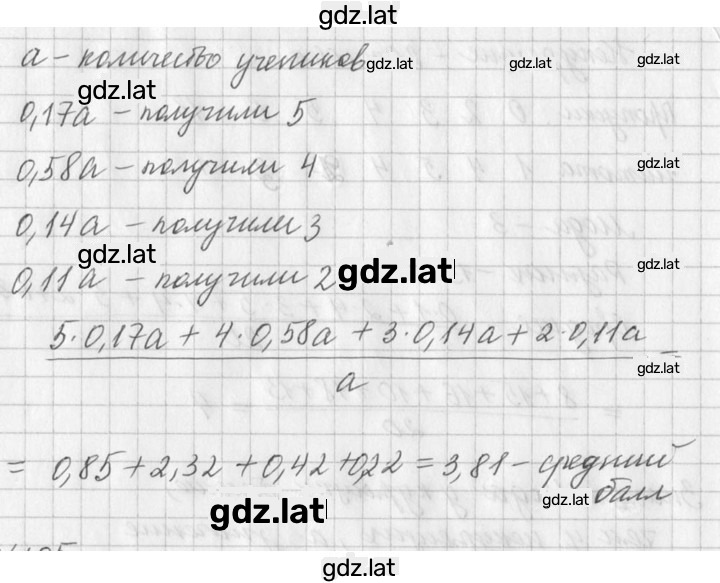 gdz.lat
a – количество учеников gdz.lat gdz.lat gdz.lat
gdz.lat
0,17a – получили 5
0,58a – получили 4 gdz.lat
0,14a – получили 3
gdz.lat gdz.lat
0,11a – получили 2 gdz.lat
5·0,17a + 4·0,58a + 3·0,14a + 2·0,11a =
a
gdz.lat
= 0,85 + 2,32 + 0,42 + 0,22 = 3,81 – средний
gdz.lat балл
gdz.lat
gdz.lat